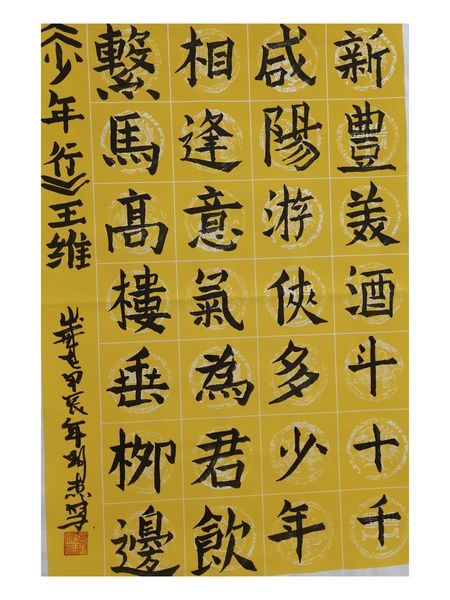 新豐美酒斗十千
咸陽游俠多少年
相逢意氣為君飲
繫馬髙樓垂柳邊
《少年行》王维
歲在甲辰年